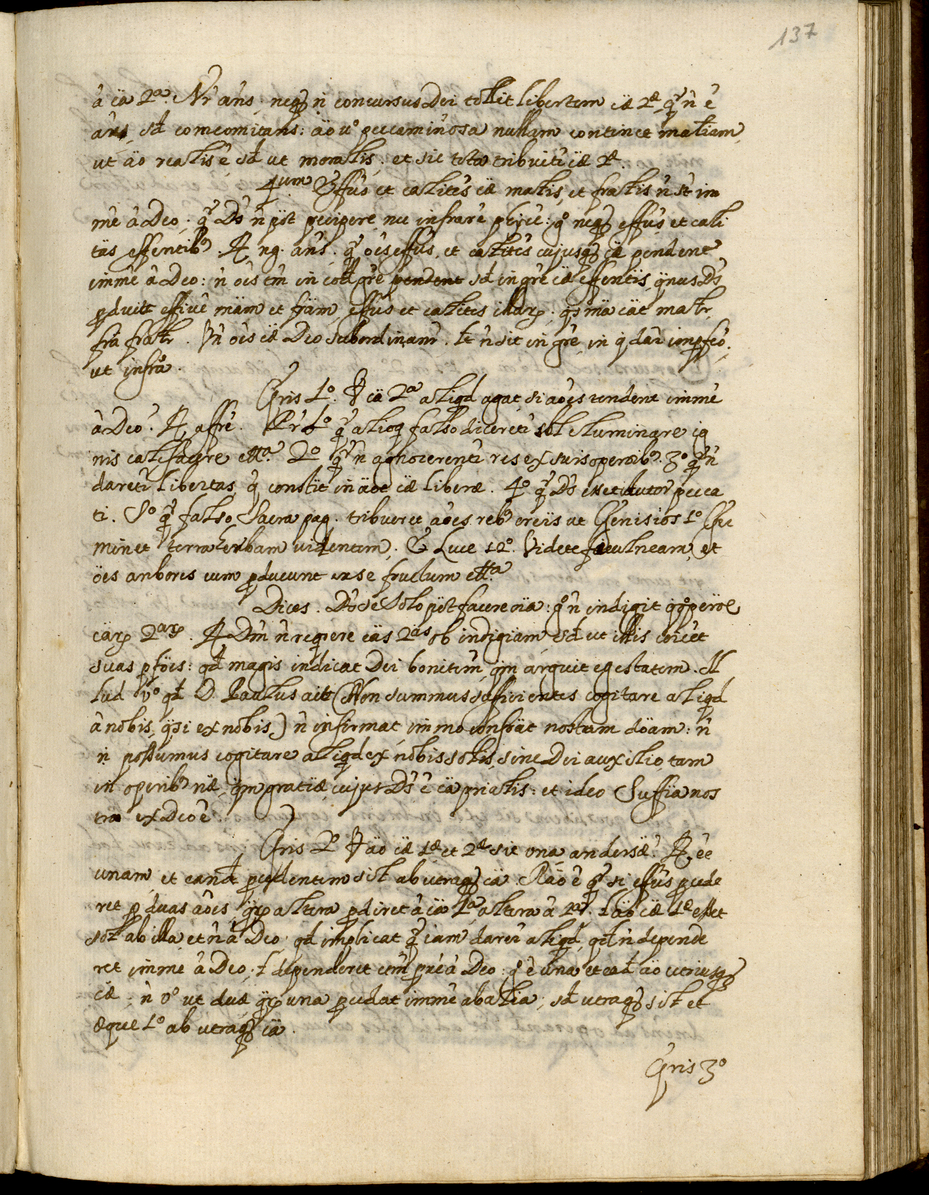 137
à cä 2ª. Nr̃ añs: neq; n̄ concursus Dei tollit libertem cæ 2æ q̃ ñ ē
añs, sd̃ comcomitans: äo v̊ peccaminosa nullam continet matiam
ut äo realis ē, sd̃ ut moralis: et sic tota tribuit̃ cæ 2æ.
4um Effus et calitës cæ matis, et fratis ñ st̃ im
mē à Deo: q̃ Ds̃ ñ põt recipere, nec infrare phĩce: q̊ neq; effus et cali
täs essentib9. R. ng. añs. q̃ oës effus, et calitës cujusq; cæ pendent
imme à Deo: ñ oës tm̃ in g̃re cæ essentis
pduit effiue mäm et främ, effus et calitës illar
frä fratr. Vñ oës cæ Deo subordinanr̃. in g̃re, in q̃ dar̃
ut infra.
Q̃ris 1º. V cä 2ª aliqd agat, si äoës pendent imme
à Deo? R. affe. Pr̃ 1º q̃ alioq falso diceret̃ sol illuminare ig
nis calefacere ettª. 2º q̃ ñ agnocerent̃ res ex suis operöib9. 3º q̃ ñ
daret̃ libertas, q̃ constit in äoe cæ liberæ. 4º q̃ Ds̃ esset autor pecca
ti. 5º q̃ falso Sacra pag. tribueret äoes reb9 ut Genisios 1º Ge
minet terra herbam videntem. Et Luce 12º. Videte ficulneam, et
öes arbores cum pducunt ex se fructum ettª
Dices. Ds̃ se solo põt facere oïa: q̊ ñ indigit
cär 2ar. R. Dm̃ ñ reqiere cäs 2as ob indigiam sd̃ ut illis
suas pföes: qd magis indicat Dei bonitem, qm arguit egestatem. Il
lud v̊ qd D. Paulus ait (Non summus sufficientes cogitare aliqd
à nobis, qsi ex nobis) ñ infirmat immo nostam döam: ñ
n̄ possumus cogitare aliqd ex nobis solis, sine Dei auxilio tam
in operib9 näe, qm gratiæ, cujus Ds̃ ē cä prïalis: et ideo Suffia nos
tra ex Deo ē.
Q̃ris 2º V äo cæ 1æ et 2æ sit una an dersæ? R. ee
unam, et eand, pcedentem sil ab utraq; cä. Räo ē q̃ si effus pcede
ret p duas äoës altera pdiret à cä 1ª altera à 2ª. äo cæ 1æ esset
sol ab illa, et ñ à Deo: qd implicat q̃ iam daret̃ aliqd, qd ñ depende
ret imme à Deo, l dependeret à Deo: q̊ ē una et ead äo utriusq
cæ: ñ v̊ ut duæ una pcedat imme ab alia, sd̃ utraq; sil et
æque 1º ab utraq; cä.
Q̃ris 3º